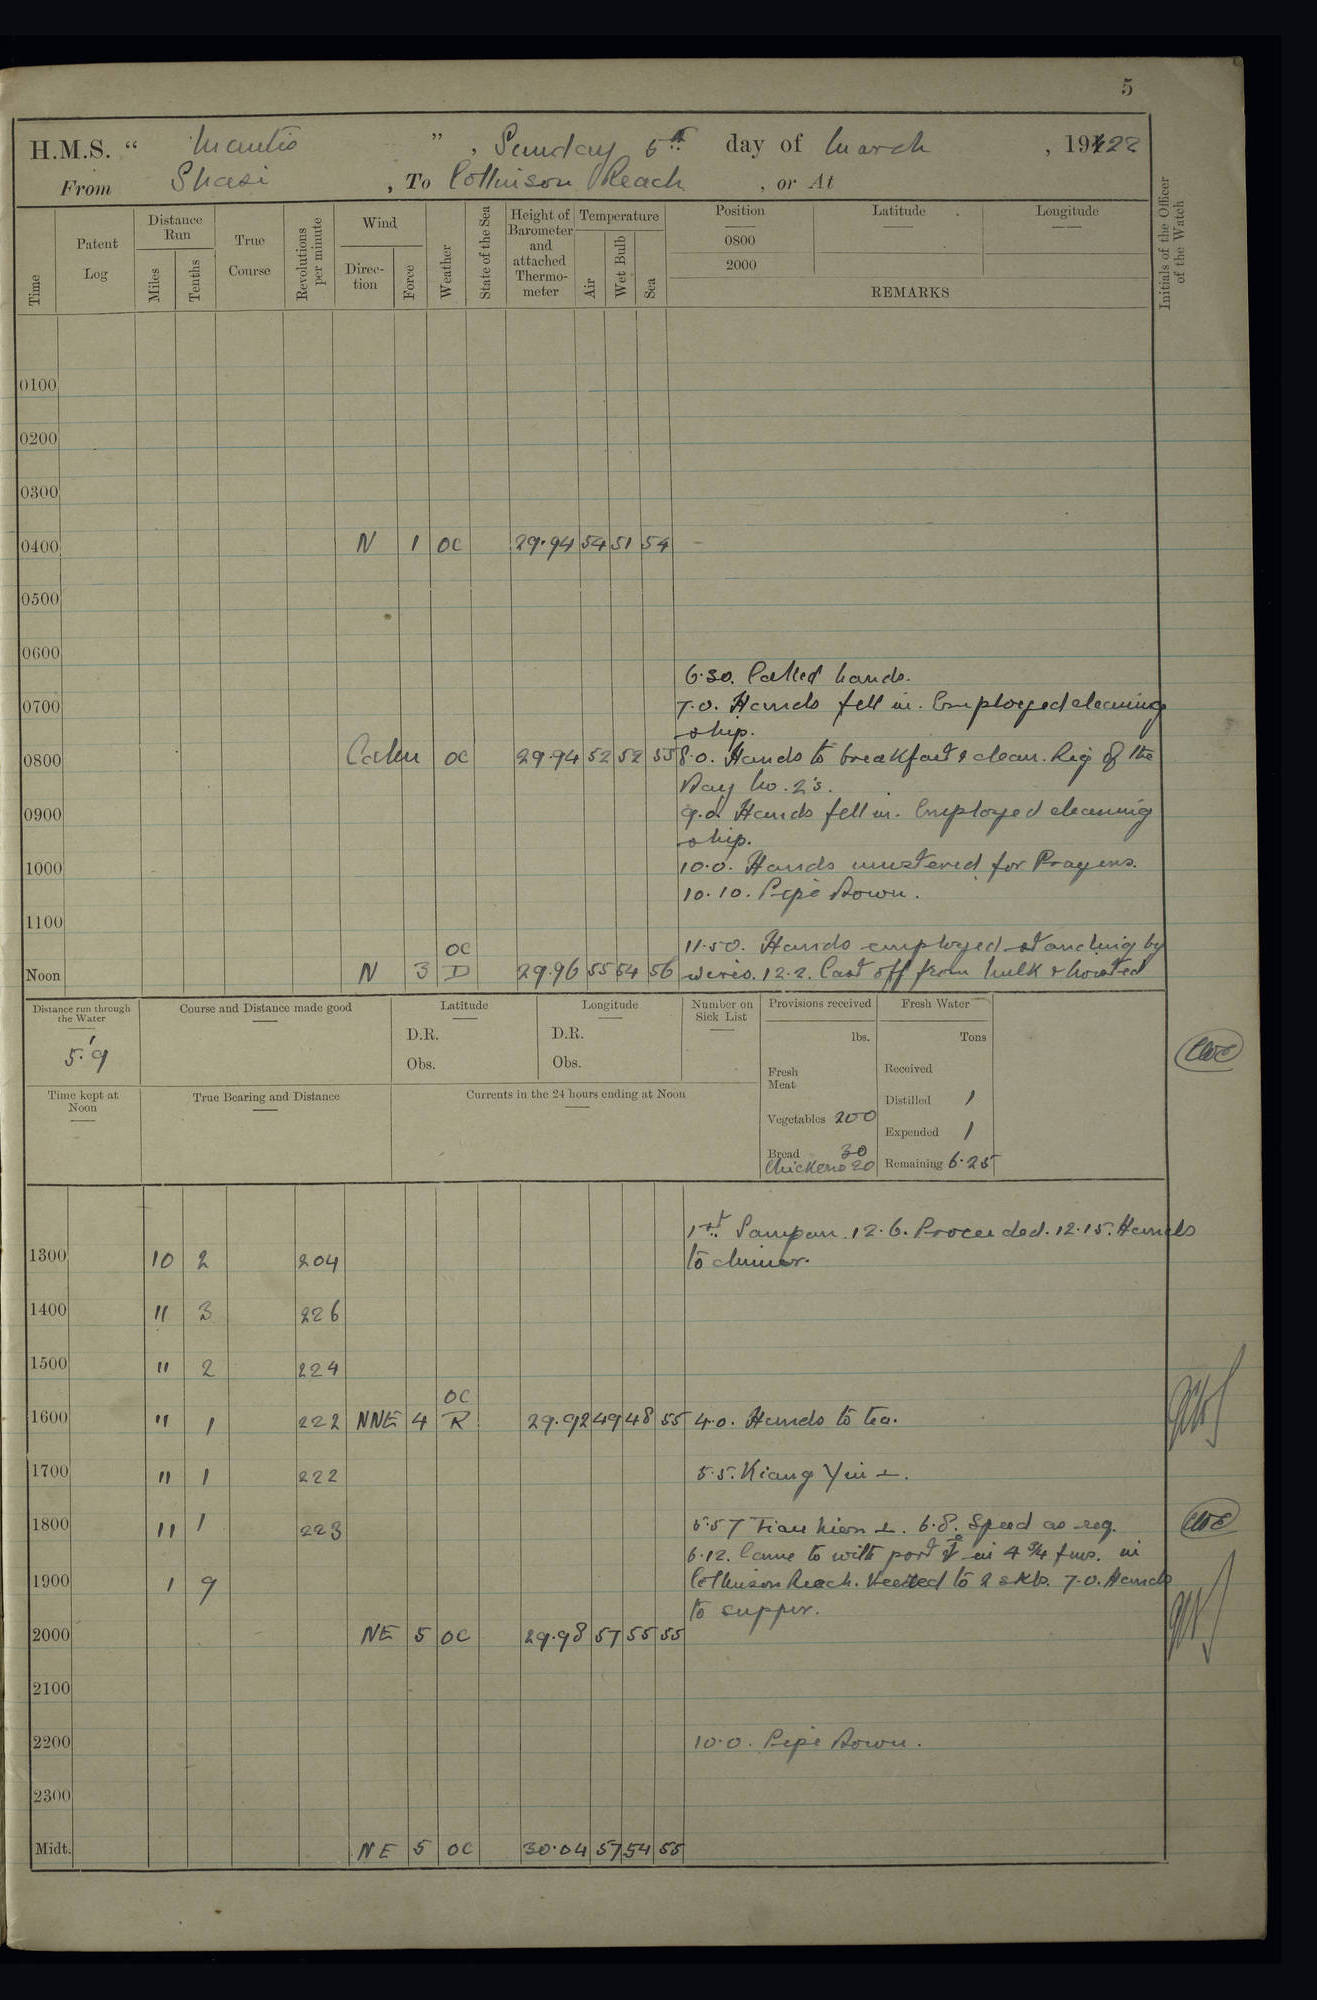 5
H.M.S. “ Mantis ” , Sunday 5th day of March , 1922
From Shasi , To Collinson Reach , or At
Time
Patent Log
Distance Run
Miles
Tenths
True Course
Revolutions per minute
Wind
Direc-tion
Force
Weather
State of the Sea
Height of Barometer and attached Thermo-meter
Temperature
Air
Wet Bulb
Sea
Position Latitude Longitude
0800
2000
REMARKS
Initials of the Officer of the Watch
0100
0200
0300
0400 N 1 OC 29.94 54 51 54
0500
0600
6.30. Called hands.
0700 7.0. Hands fell in. Employed cleaning
ship.
0800 Calm OC 29.94 52 52 55 8.0. Hands to breakfast & clean. Rig of the
Day No. 2's.
0900 9.0. Hands fell in. Employed cleaning
ship.
1000 10.0. Hands mustered for Prayers.
10.10. Pipe Down.
1100
OC 11.50. Hands employed standing by
Noon N 3 D 29.96 55 54 56 wires. 12.2. Cast off from hulk & hoisted
Distance run through the Water
5.'9
Course and Distance made good
Latitude
D.R.
Obs.
Longitude
D.R.
Obs.
Number on Sick List
Provisions received
lbs.
Fresh Meat
Vegetables 200
Bread 30
Chickens 20
Fresh Water
Tons
Received
Distilled 1
Expended 1
Remaining 6.25
Time kept at Noon
True Bearing and Distance
Currents in the 24 hours ending at Noon
1st Sampan. 12.6. Proceeded. 12.15. Hands
1300 10 2 204 to dinner.
1400 " 3 226
1500 " 2 224
OC
1600 " 1 222 NNE 4 R 29.92 49 48 55 4.0. Hands to tea.
1700 " 1 222 5.5. Kiang Yin ⊥.
1800 " 1 223 5.57 Tiau hien ⊥. 6.8. Speed as req.
6.12. Came to with port in 4 3/4 fms. in
1900 1 9 Collinson Reach. Veered to 2 skls. 7.0. Hands
to supper.
2000 NE 5 OC 29.98 57 55 55
2100
2200 10.0. Pipe Down.
2300
Midt. NE 5 OC 30.04 57 54 55